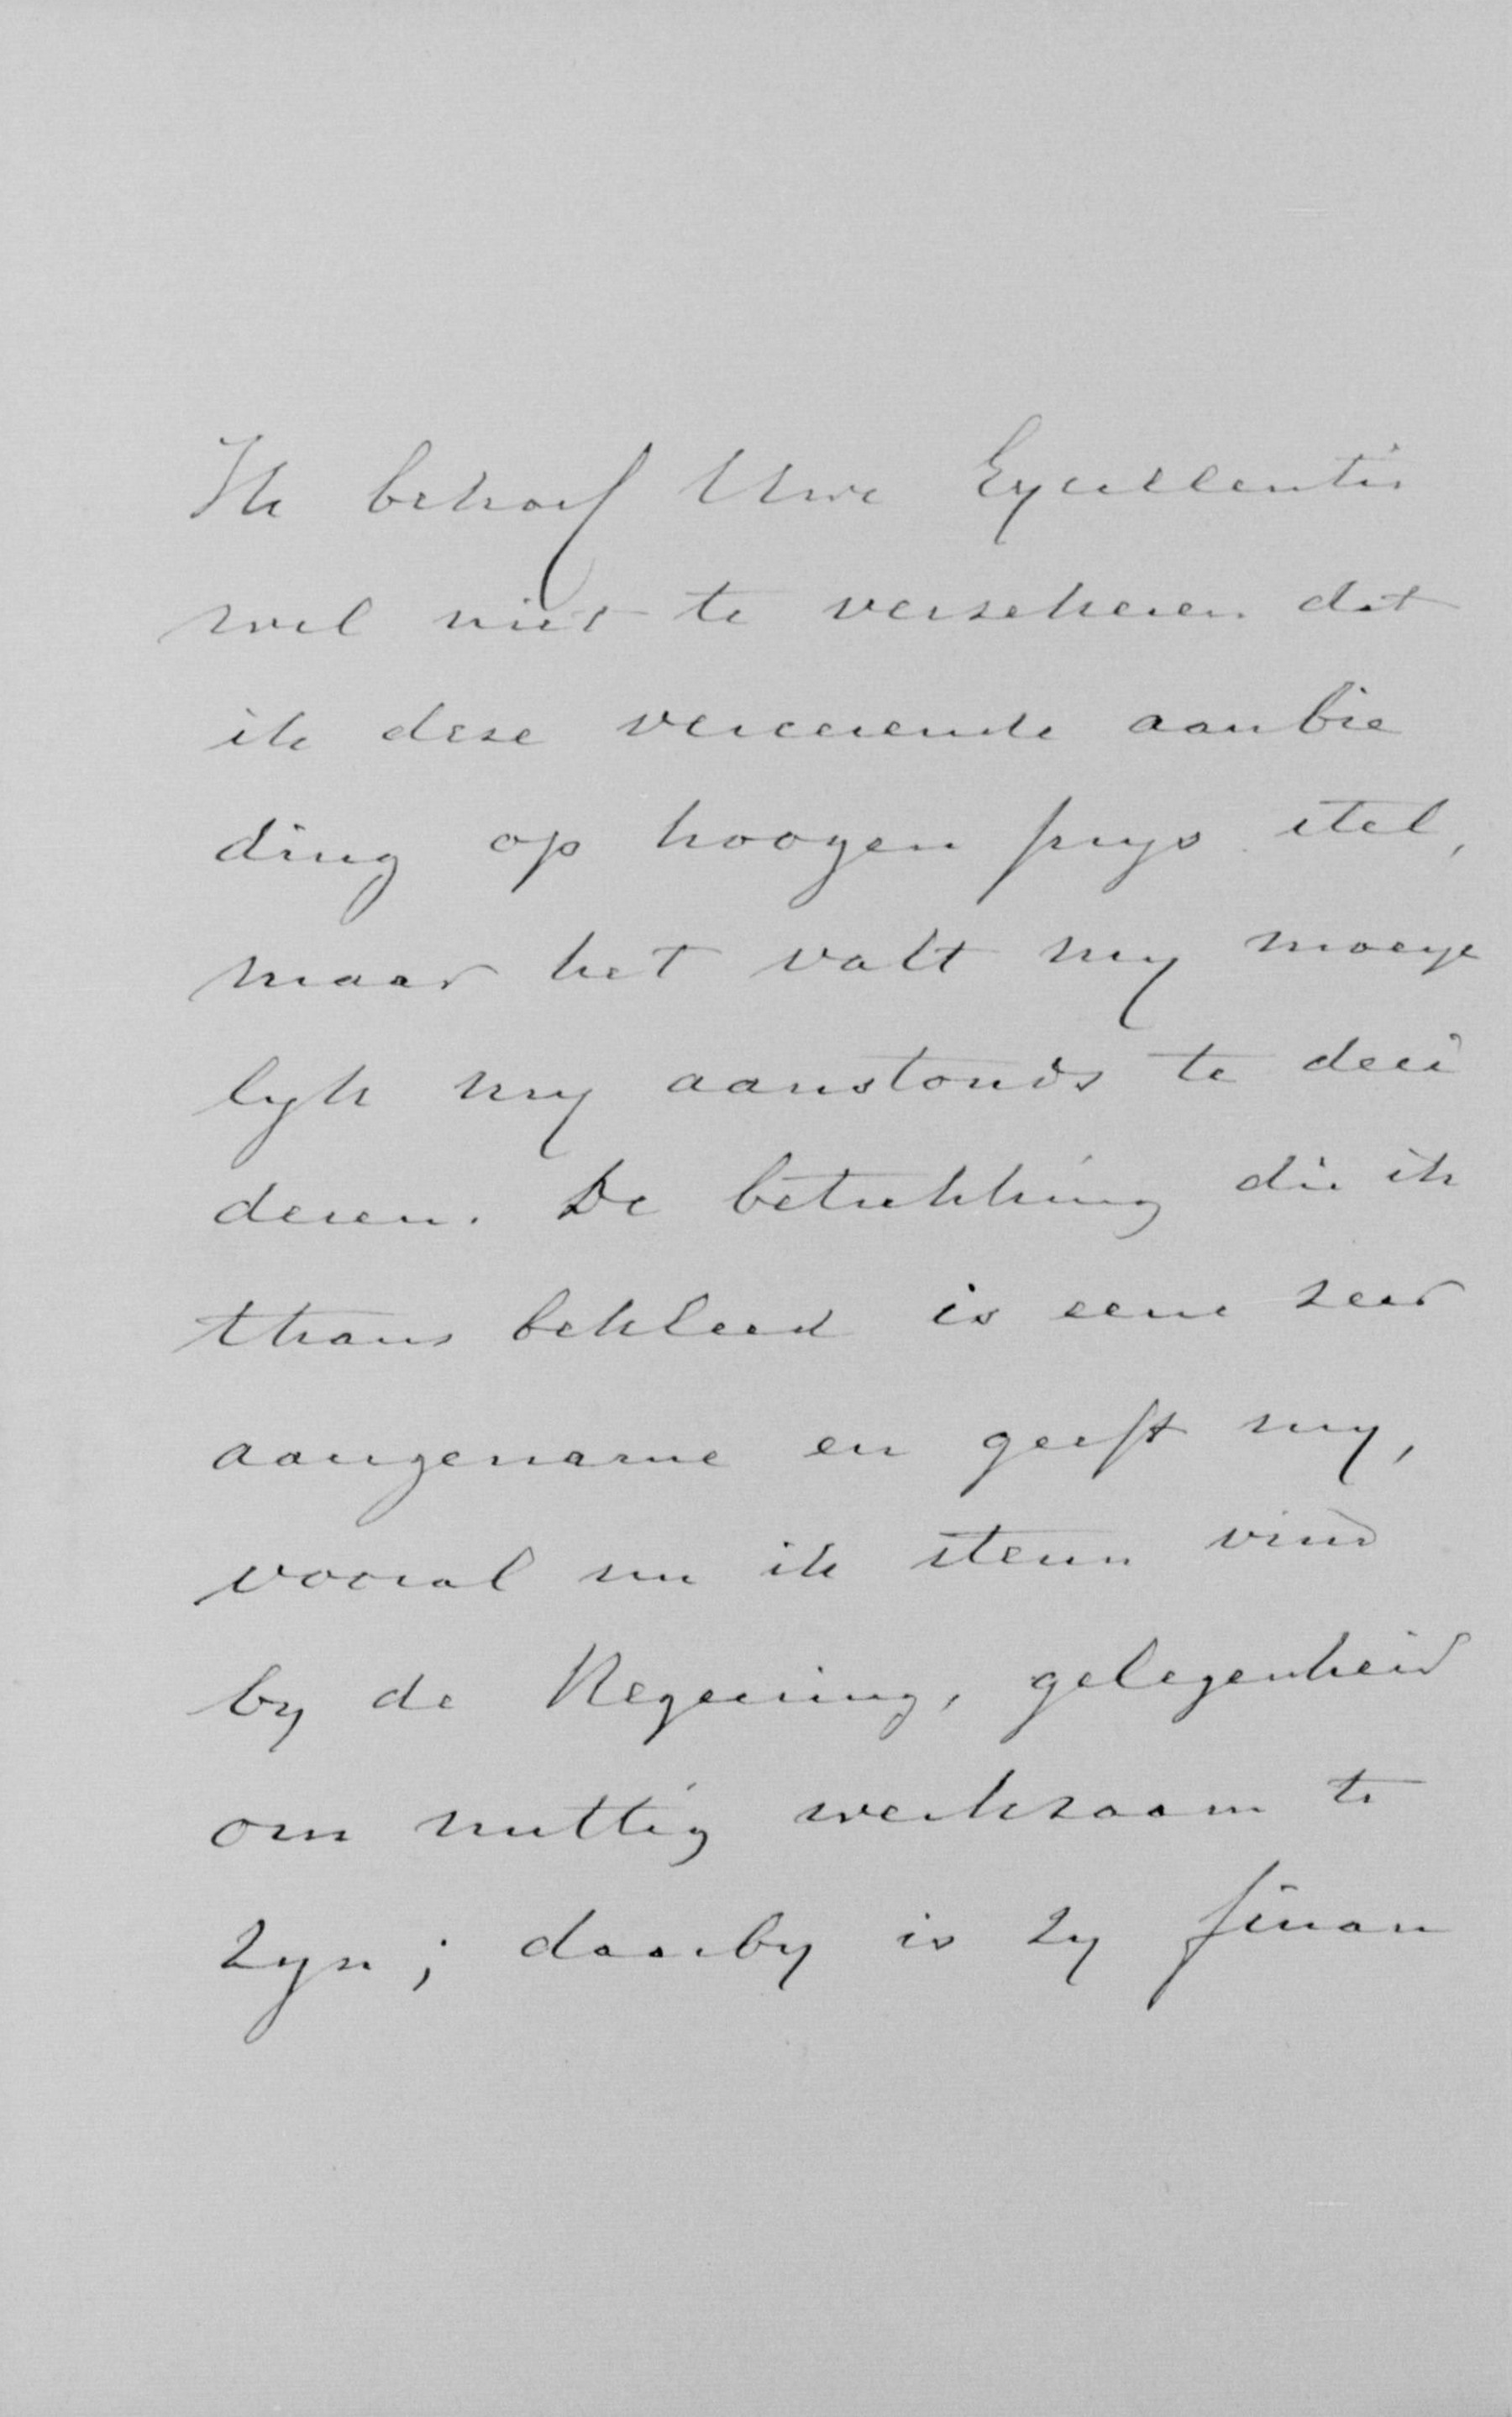 Ik behoef Uwe Excellentie
wel niet te verzekeren dat
ik deze vereerende aanbie
ding op hoogen prys stel,
maar het valt my moeye
lyk my aanstonds te deci
deren. De betrekking die ik
thans bekleed is eene zeer
aangename en geeft my,
vooral nu ik steun vind
by de Regeering, gelegenheid
om nuttig werkzaam te
zyn; daarby is zy finan